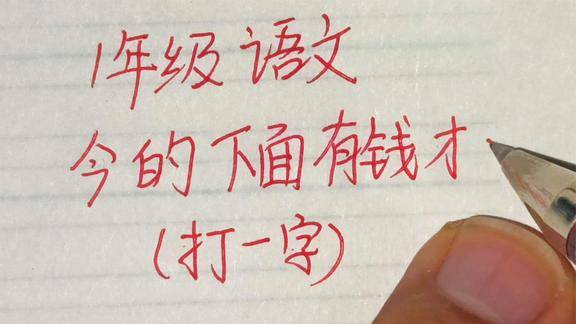 1年级语文
今的下面有钱才
(打一字)